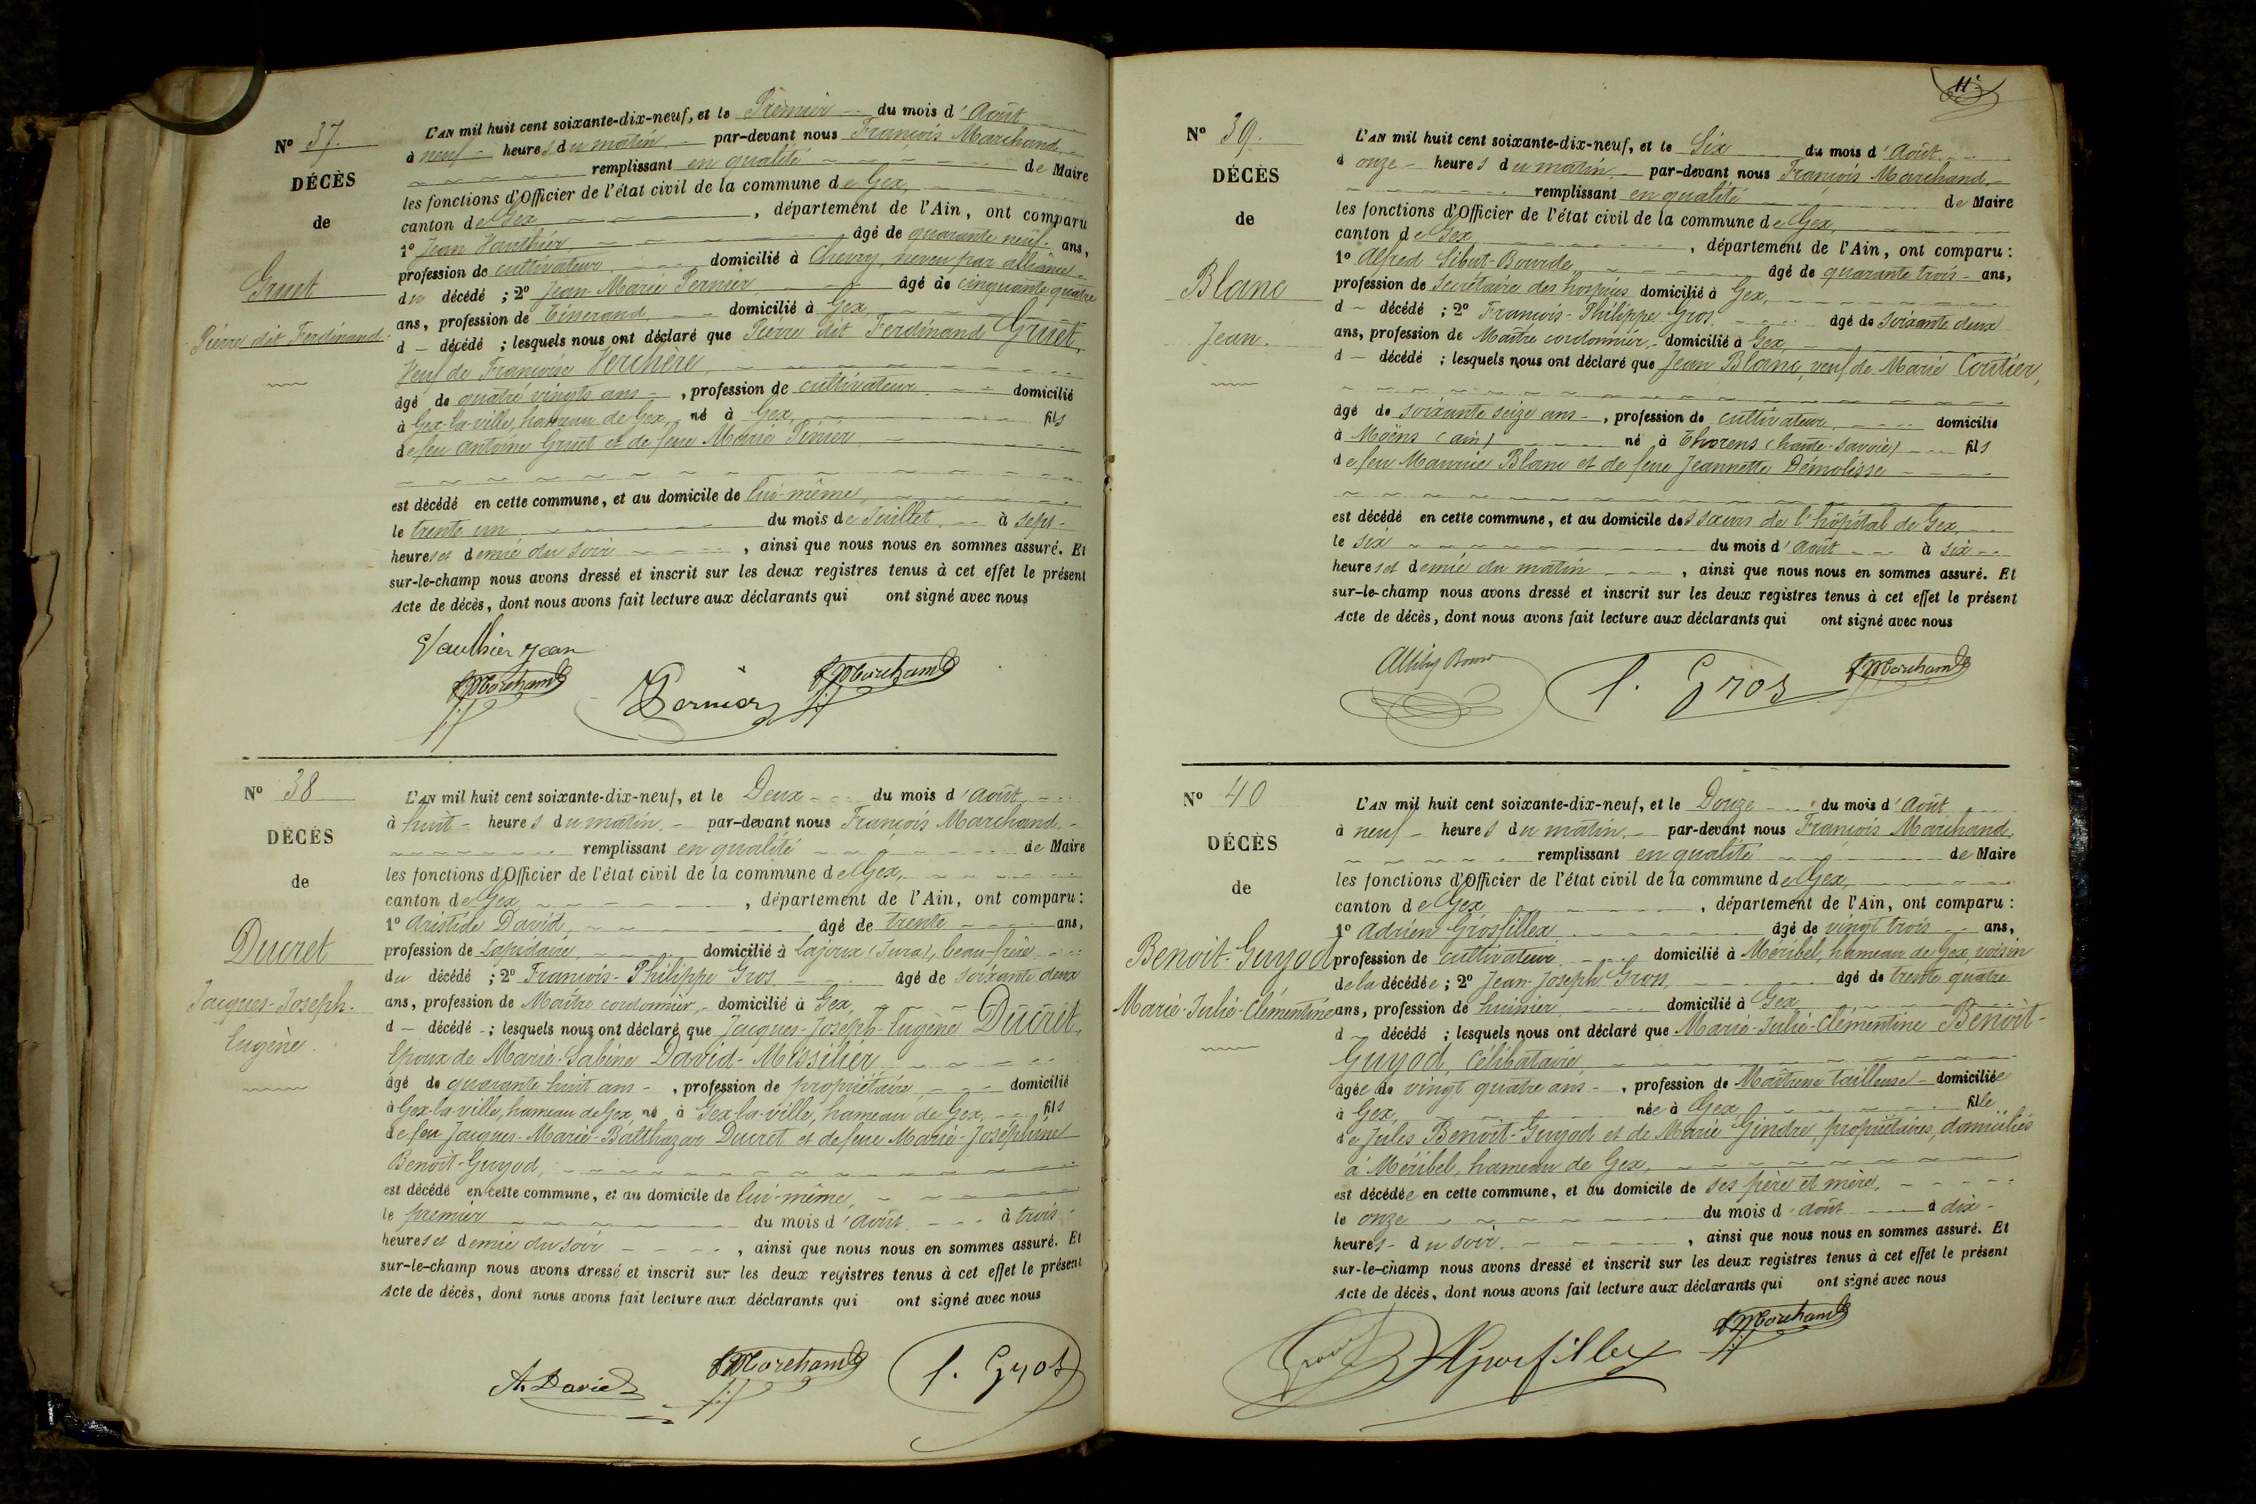 Nº 37.
DÉCÈS
de
Gruet
Pierre dit Ferdinand.
L'AN mil huit cent soixante-dix-neuf, et le Premier du mois d'Août
à neuf heures du matin par-devant nous François Marchand
remplissant en qualité de Maire
les fonctions d'Officier de l'état civil de la commune de Gex,
canton de Gex, département de l'Ain, ont comparu
1º Jean Vauthier âgé de quarante neuf ans,
profession de cultivateur domicilié à Chevry, neveu par alliance
du décédé ; 2º Jean-Marie Pernier âgé de cinquante quatre
ans, profession de Tisserand domicilié à Gex
d décédé ; lesquels nous ont déclaré que Pierre dit Ferdinand Gruet,
Veuf de Françoise Verchère,
âgé de quatre vingts ans, profession de cultivateur domicilié
à Gex-la-ville, hameau de Gex, né à Gex, fils
de feu Antoine Gruet et de feue Marie Pinier
est décédé en cette commune, et au domicile de lui-même
le trente un du mois de Juillet à sept
heures et demie du soir, ainsi que nous nous en sommes assuré. Et
sur-le-champ nous avons dressé et inscrit sur les deux registres tenus à cet effet le présent
Acte de décès, dont nous avons fait lecture aux déclarants qui ont signé avec nous
Vauthier Jean
F Marchand
Pernier
F Marchand
Nº 38
DÉCÈS
de
Ducret
Jacques-Joseph-
Eugène.
L'AN mil huit cent soixante-dix-neuf, et le Deux du mois d'Août
à huit heures du matin. par-devant nous François Marchand
remplissant en qualité de Maire
les fonctions d'Officier de l'état civil de la commune de Gex,
canton de Gex, département de l'Ain, ont comparu :
1º Aristide David, âgé de trente ans,
profession de Lapidaire, domicilié à Lajoux (Jura), beau-frère
du décédé ; 2º François-Philippe Gros âgé de soixante deux
ans, profession de Maître cordonnier, domicilié à Gex,
d décédé ; lesquels nous ont déclaré que Jacques-Joseph-Eugène Ducret,
Epoux de Marie-Sabine David-Missilier
âgé de quarante huit ans, profession de propriétaire, domicilié
à Gex-la-ville, hameau de Gex, né à Gex-la-ville, hameau de Gex, fils
de feu Jacques-Marie-Balthazar Ducret et de feue Marie-Joséphine
Benoît-Guyod,
est décédé en cette commune, et au domicile de lui-même
le premier du mois d'Août à trois
heures et demie du soir, ainsi que nous nous en sommes assuré. Et
sur-le-champ nous avons dressé et inscrit sur les deux registres tenus à cet effet le présent
Acte de décès, dont nous avons fait lecture aux déclarants qui ont signé avec nous
A. David
F Marchand
f. Gros
11
Nº 39.
DÉCÈS
de
Blanc
Jean.
L'AN mil huit cent soixante-dix-neuf, et le Six du mois d'Août
à onze heures du matin. par-devant nous François Marchand
remplissant en qualité de Maire
les fonctions d'Officier de l'état civil de la commune de Gex,
canton de Gex, département de l'Ain, ont comparu :
1º Alfred Sibut-Bourde âgé de quarante trois ans,
profession de Secrétaire des hospices domicilié à Gex,
d décédé ; 2º François-Philippe Gros âgé de soixante deux
ans, profession de Maître cordonnier, domicilié à Gex,
d décédé ; lesquels nous ont déclaré que Jean Blanc, veuf de Marie Coutier,
âgé de soixante seize ans, profession de cultivateur, domicilié
à Moëns (ain) né à Thorens (haute-savoie) fils
de feu Maurice Blanc et de feue Jeannette Démolisse
est décédé en cette commune, et au domicile des sœurs de l'hôpital de Gex
le six du mois d'Août à six
heures et demie du matin, ainsi que nous nous en sommes assuré. Et
sur-le-champ nous avons dressé et inscrit sur les deux registres tenus à cet effet le présent
Acte de décès, dont nous avons fait lecture aux déclarants qui ont signé avec nous
f. Gros
F Marchand
Nº 40
DÉCÈS
de
Benoît-Guyod
Marie-Julie-Clémentine
L'AN mil huit cent soixante-dix-neuf, et le Douze du mois d'Août
à neuf heures du matin, par-devant nous François Marchand,
remplissant en qualité de Maire
les fonctions d'Officier de l'état civil de la commune de Gex,
canton de Gex, département de l'Ain, ont comparu :
1º Adrien Grosfillex âgé de vingt trois ans,
profession de cultivateur domicilié à Méribel, hameau de Gex, voisin
de la décédée ; 2º Jean-Joseph Gros âgé de trente quatre
ans, profession de huissier domicilié à Gex
d décédé ; lesquels nous ont déclaré que Marie-Julie-Clémentine Benoît-
Guyod, célibataire
âgée de vingt quatre ans, profession de Maîtresse tailleuse domiciliée
à Gex, née à Gex, fille
de Jules Benoît-Guyod et de Marie Gindre, propriétaires, domiciliés
à Méribel, hameau de Gex,
est décédée en cette commune, et au domicile de ses père et mère,
le onze du mois d'août à dix
heures du soir, ainsi que nous nous en sommes assuré. Et
sur-le-champ nous avons dressé et inscrit sur les deux registres tenus à cet effet le présent
Acte de décès, dont nous avons fait lecture aux déclarants qui ont signé avec nous
A Grosfillex
F Marchand